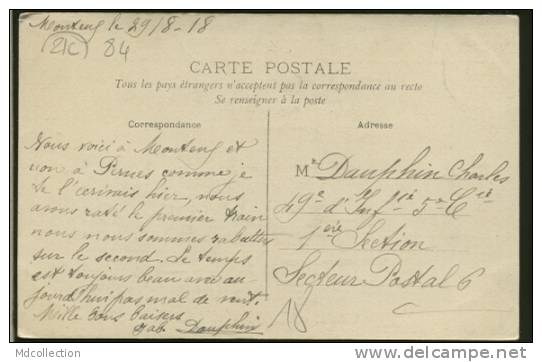 Monteux le 29/8-18
84
CARTE POSTALE
Tous les pays étrangers n'acceptent pas la correspondance au recto
Se renseigner à la poste
Correspondance
Adresse
Nous voici à Monteux et
non à Pernes comme je
te l'écrivais hier, nous
avons raté le premier train
nous nous sommes rabattus
sur le second. Le temps
est toujours beau avec au-
jourd'hui pas mal de vent.
Mille bons baisers
Gab. Dauphin
Mr Dauphin Charles
49e d'Infie 5e Cie
1ère Section
Secteur Postal 6
18
Mdcollection
www.delcampe.net